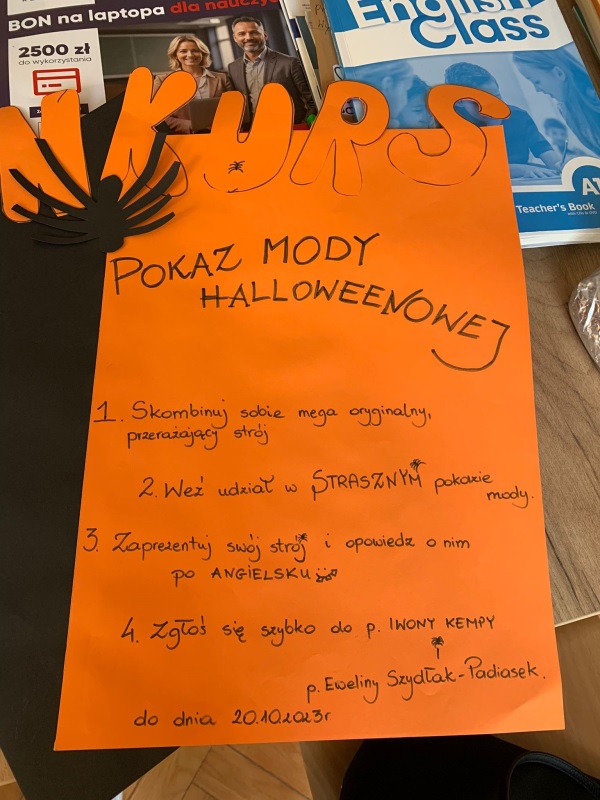 BON na laptopa dla nauczy
2500 zł
do wykorzystania
English
Class
A1
Teacher's Book
NKURS
POKAZ MODY
HALLOWEENOWEJ
1. Skombinuj sobie mega oryginalny,
przerażający strój
2. Weź udział w STRASZNYM pokazie
mody.
3. Zaprezentuj swój strój i opowiedz o nim
po ANGIELSKU
4. Zgłoś się szybko do p. IWONY KEMPY
p. Eweliny Szydłak-Padiasek.
do dnia 20.10.2023r.